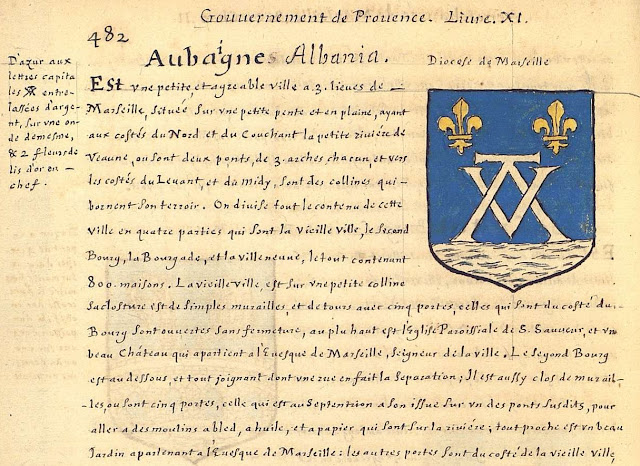 Gouvernement de Provence. Liure. XI.
482
Aubaignes Albania.
Diocese de Marseille
D'azur aux
lettres capita
les entre-
lassées d'arge
nt, sur vne on
de demesme,
& 2 fleurs de
lis d'or en
chef.
Est vne petite, et agreable ville a 3. lieues de
Marseille, située sur vne petite pente et en plaine, ayant
aux costés du Nord et du Couchant la petite riuiere de
Veaune, ou sont deux ponts, de 3. arches chacun, et vers
les costés du Leuant, et du Midy, sont des collines qui
bornent son terroir. On diuise tout le contenu de cette
ville en quatre parties qui sont la vieille ville, le second
Bourg, la Bourgade, et la villeneuue, le tout contenant
800. maisons. La vieille ville, est sur vne petite colline
sa closture est de simples murailles, et de tours auec cinq portes, celles qui sont du costé du
Bourg sont ouuertes sans fermeture, au plu haut est l'Eglise Paroissiale de S. Sauueur, et vn
beau Château qui apartient a l'Euesque de Marseille, Seigneur de la ville. Le Segond Bourg
est au dessous, et tout joignant dont vne rue en fait la separation; Il est aussy clos de murail-
-les, ou sont cinq portes, celle qui est au Septentrion a son issue sur vn des ponts susdits, pour
aller a des moulins a bled, a huile, et a papier qui sont sur la riuiere; tout proche est vn beau
Jardin apartenant a l'Euesque de Marseille: les autres portes sont du costé de la vieille ville,